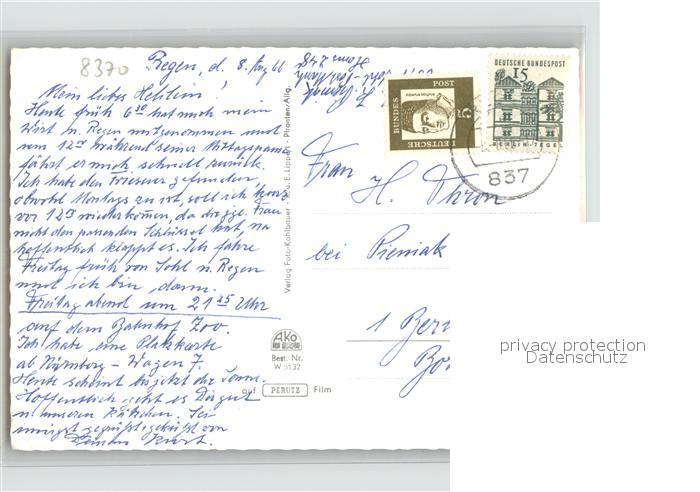 8370
Regen, d. 8. Aug 66
Mein liebes
Heute früh 6³⁰ hat mich mein
Wirt n. Regen mitgenommen und
um 12⁰⁰ während seiner Mittagspause
fährt er mich schnell zurück.
Ich habe den Friseur gefunden
obwohl Montags zu ist, soll ich kurz
vor 12⁰⁰ wiederkommen, da die
nicht den passenden Schlüssel hat, na
hoffentlich klappt es. Ich fahre
Freitag früh von n. Regen
und ich bin dann
Freitag abend um 21²⁵ Uhr
auf dem Bahnhof Zoo.
Ich habe eine Platzkarte
ab Nürnberg - Wagen 7.
Heute scheint die Sonne.
Hoffentlich geht es Dir gut
u. unseren Kätzchen. Sei
innigst gegrüßt + geküßt von
Deinem Kurt.
Verlag Foto-Kohlbauer
AKo
Best. Nr.
W 5132
auf PERUTZ Film
Albertus Magnus
DEUTSCHE BUNDESPOST
5
DEUTSCHE BUNDESPOST
15
BERLIN-TEGEL
837
Frau
H. Thron
bei Pieniak
1 Ber
privacy protection
Datenschutz